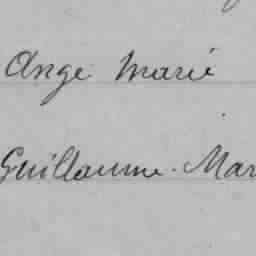 Ange Marie
Guillaume. Mar